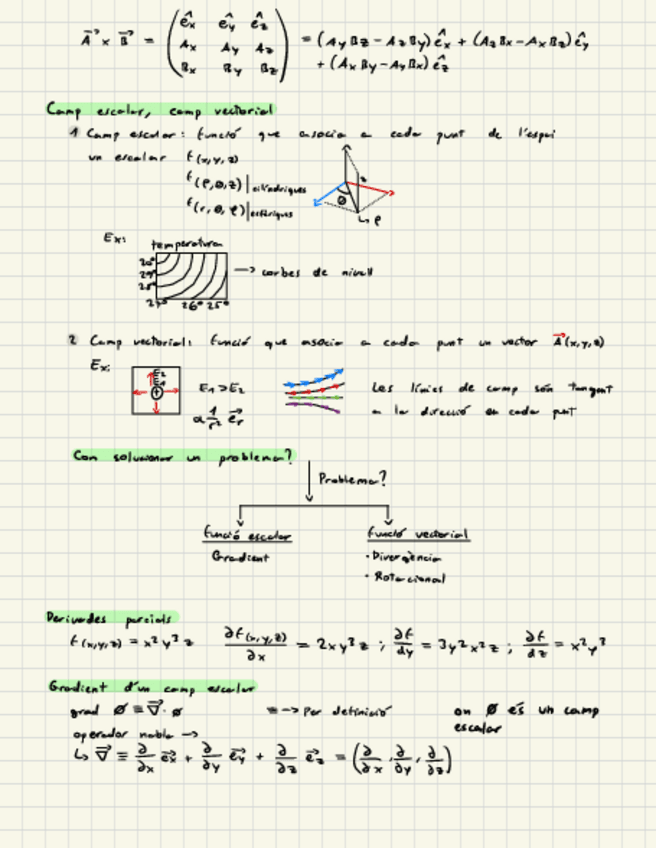 A⃗ × B⃗ = ( ê_x ê_y ê_z = (A_y B_z − A_z B_y) ê_x + (A_z B_x − A_x B_z) ê_y
A_x A_y A_z + (A_x B_y − A_y B_x) ê_z
B_x B_y B_z )
Camp escalar, camp vectorial
1 Camp escalar: Funció que associa a cada punt de l'espai
un escalar f(x,y,z)
f(ρ,θ,z)|cilíndriques
f(r,θ,φ)|esfèriques
z
θ
↳ ρ
Ex: temperatura
27° 26° 25°
→ corbes de nivell
2 Camp vectorial: Funció que associa a cada punt un vector A⃗(x,y,z)
Ex:
E₁ > E₂ Les línies de camp són tangent
α 1/r² e⃗_r a la direcció en cada punt
Com solucionar un problema?
Problema?
Funció escalar Funció vectorial
Gradient • Divergència
• Rotacional
Derivades parcials
f(x,y,z) = x²y³z ∂f(x,y,z)/∂x = 2xy³z ; ∂f/dy = 3y²x²z ; ∂f/dz = x²y³
Gradient d'un camp escalar
grad Ø ≡ ∇⃗·Ø ≡ → Per definició on Ø és un camp
escalar
operador nabla →
↳ ∇⃗ ≡ ∂/∂x e⃗_x + ∂/∂y e⃗_y + ∂/∂z e⃗_z = (∂/∂x, ∂/∂y, ∂/∂z)